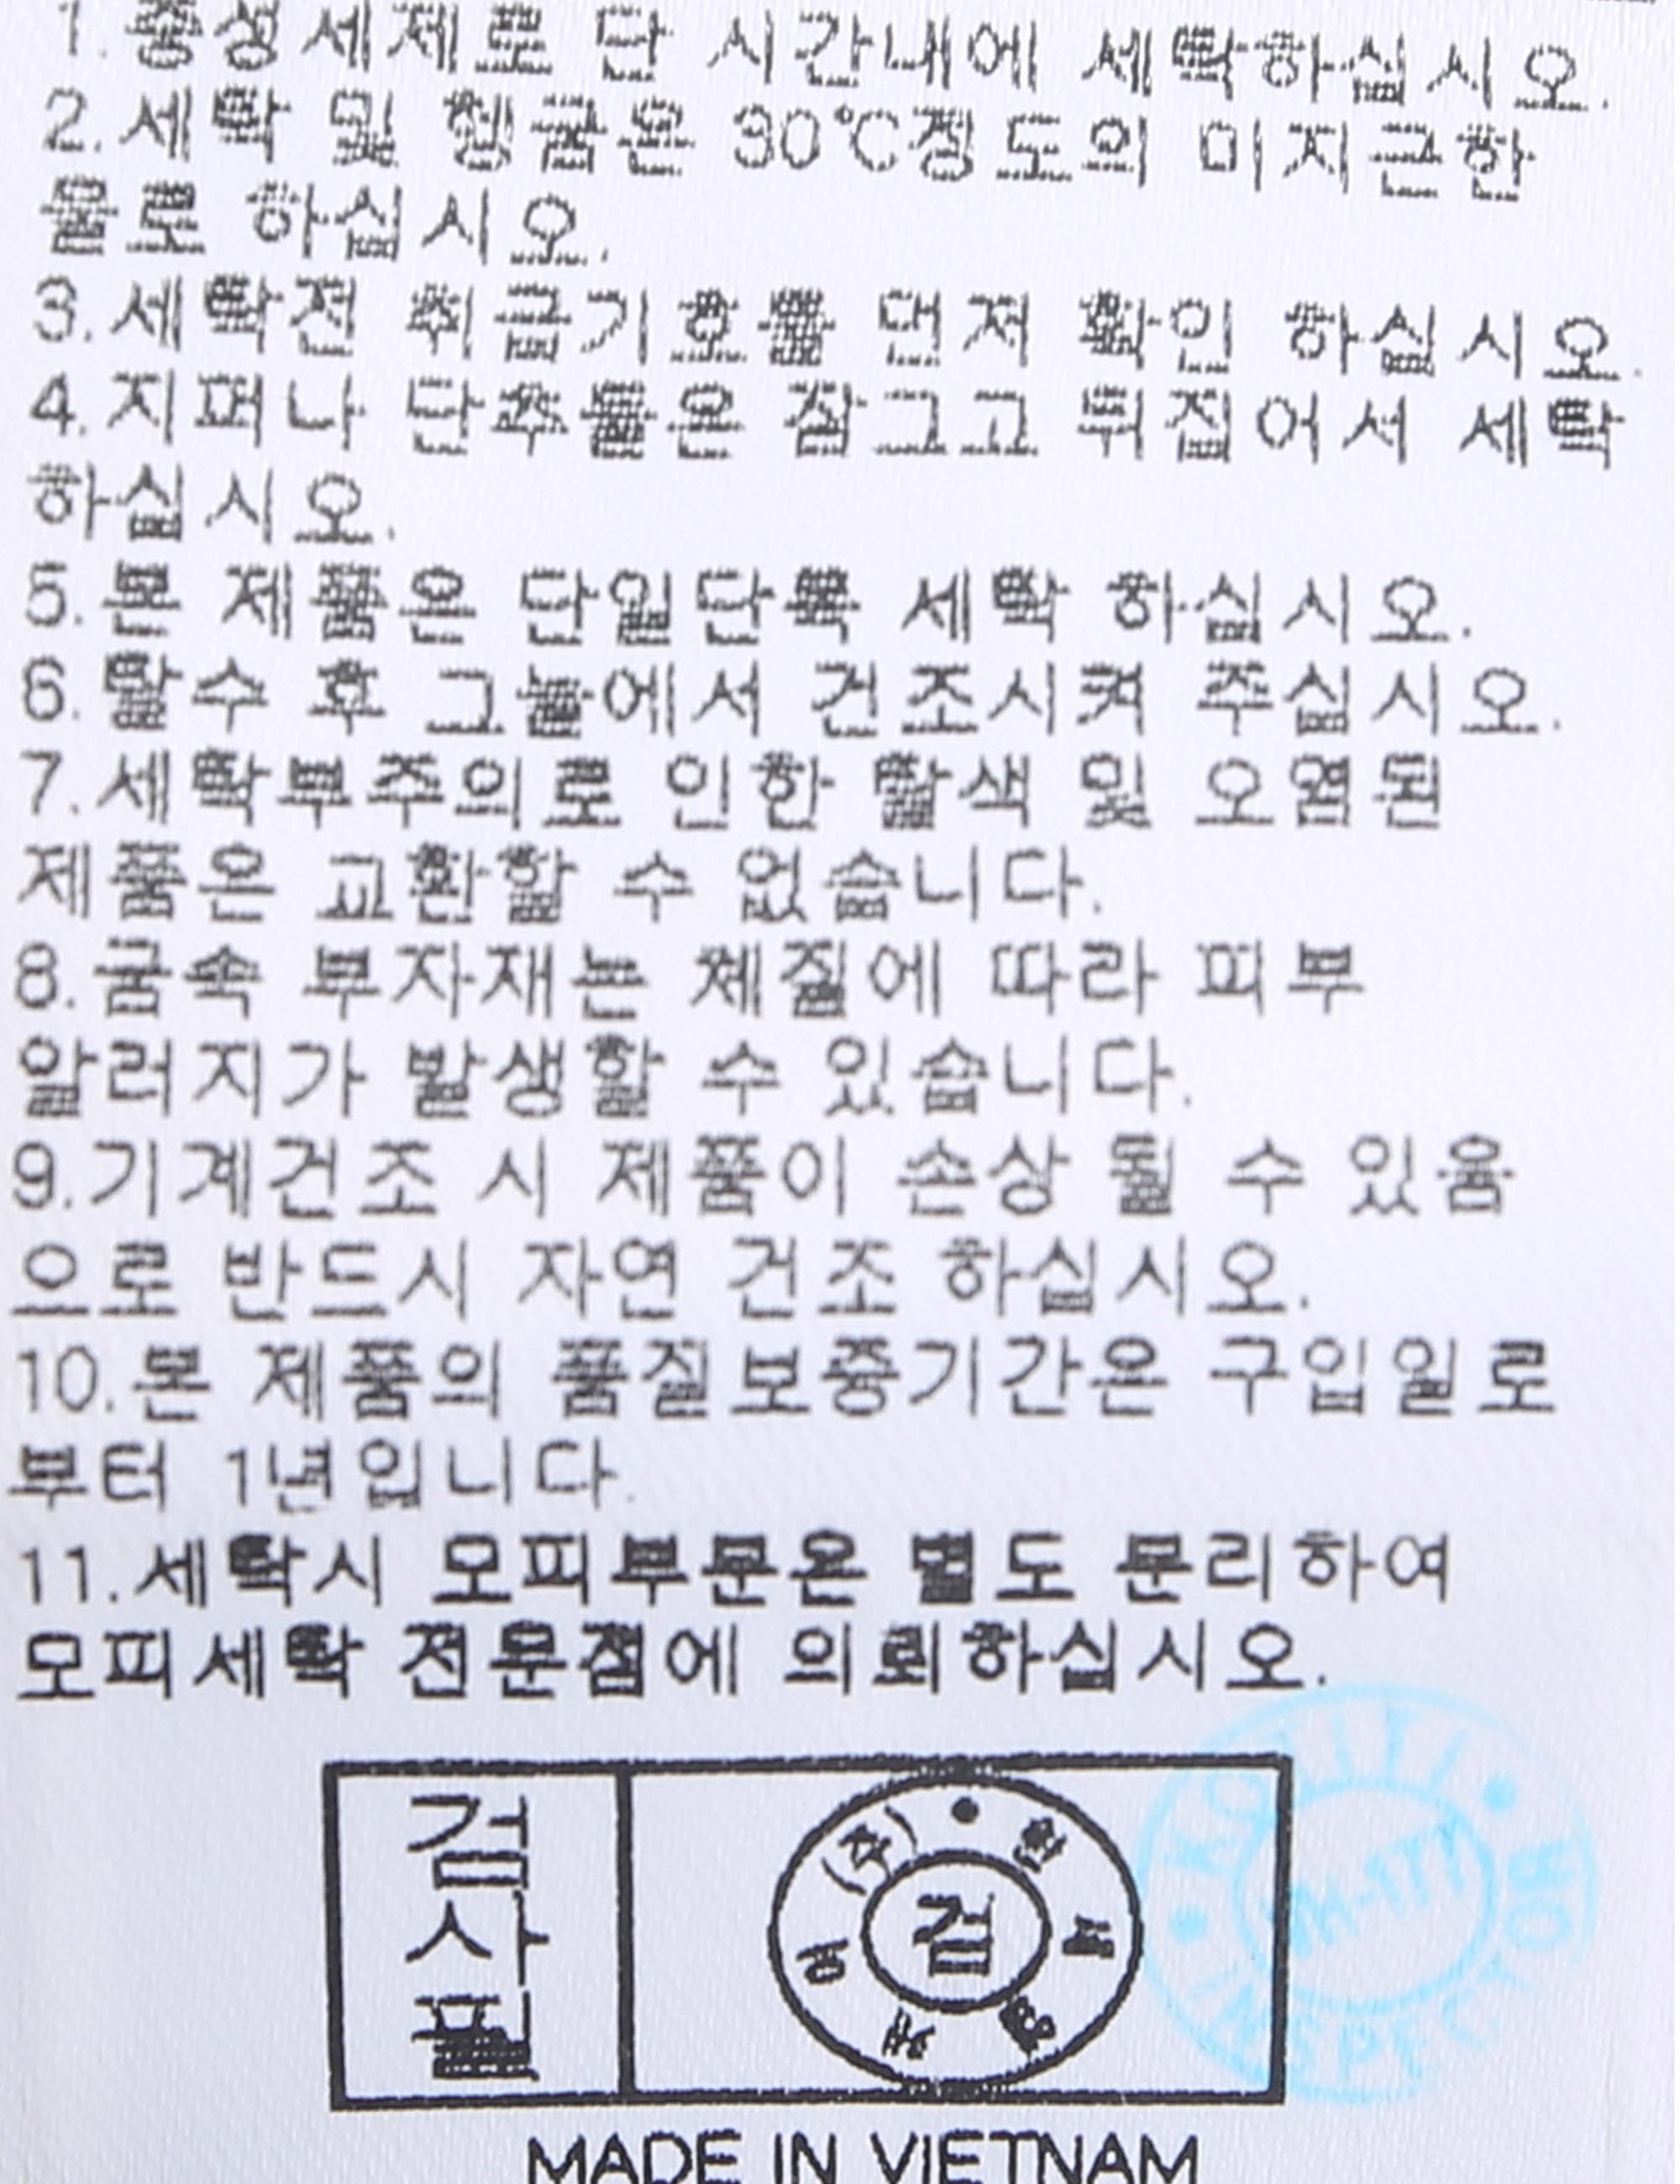 1.중성세제로 단 시간내에 세탁하십시오.
2.세탁 및 헹굼은 30℃정도의 미지근한
물로 하십시오.
3.세탁전 취급기호를 먼저 확인 하십시오.
4.지퍼나 단추들은 잠그고 뒤집어서 세탁
하십시오.
5.본 제품은 단일단독 세탁 하십시오.
6.탈수 후 그늘에서 건조시켜 주십시오.
7.세탁부주의로 인한 탈색 및 오염된
제품은 교환할 수 없습니다.
8.금속 부자재는 체질에 따라 피부
알러지가 발생할 수 있습니다.
9.기계건조 시 제품이 손상 될 수 있음
으로 반드시 자연 건조 하십시오.
10.본 제품의 품질보증기간은 구입일로
부터 1년입니다.
11.세탁시 모피부분은 별도 분리하여
모피세탁 전문점에 의뢰하십시오.
검사필
(주)
검
INSPECTOR
MADE IN VIETNAM